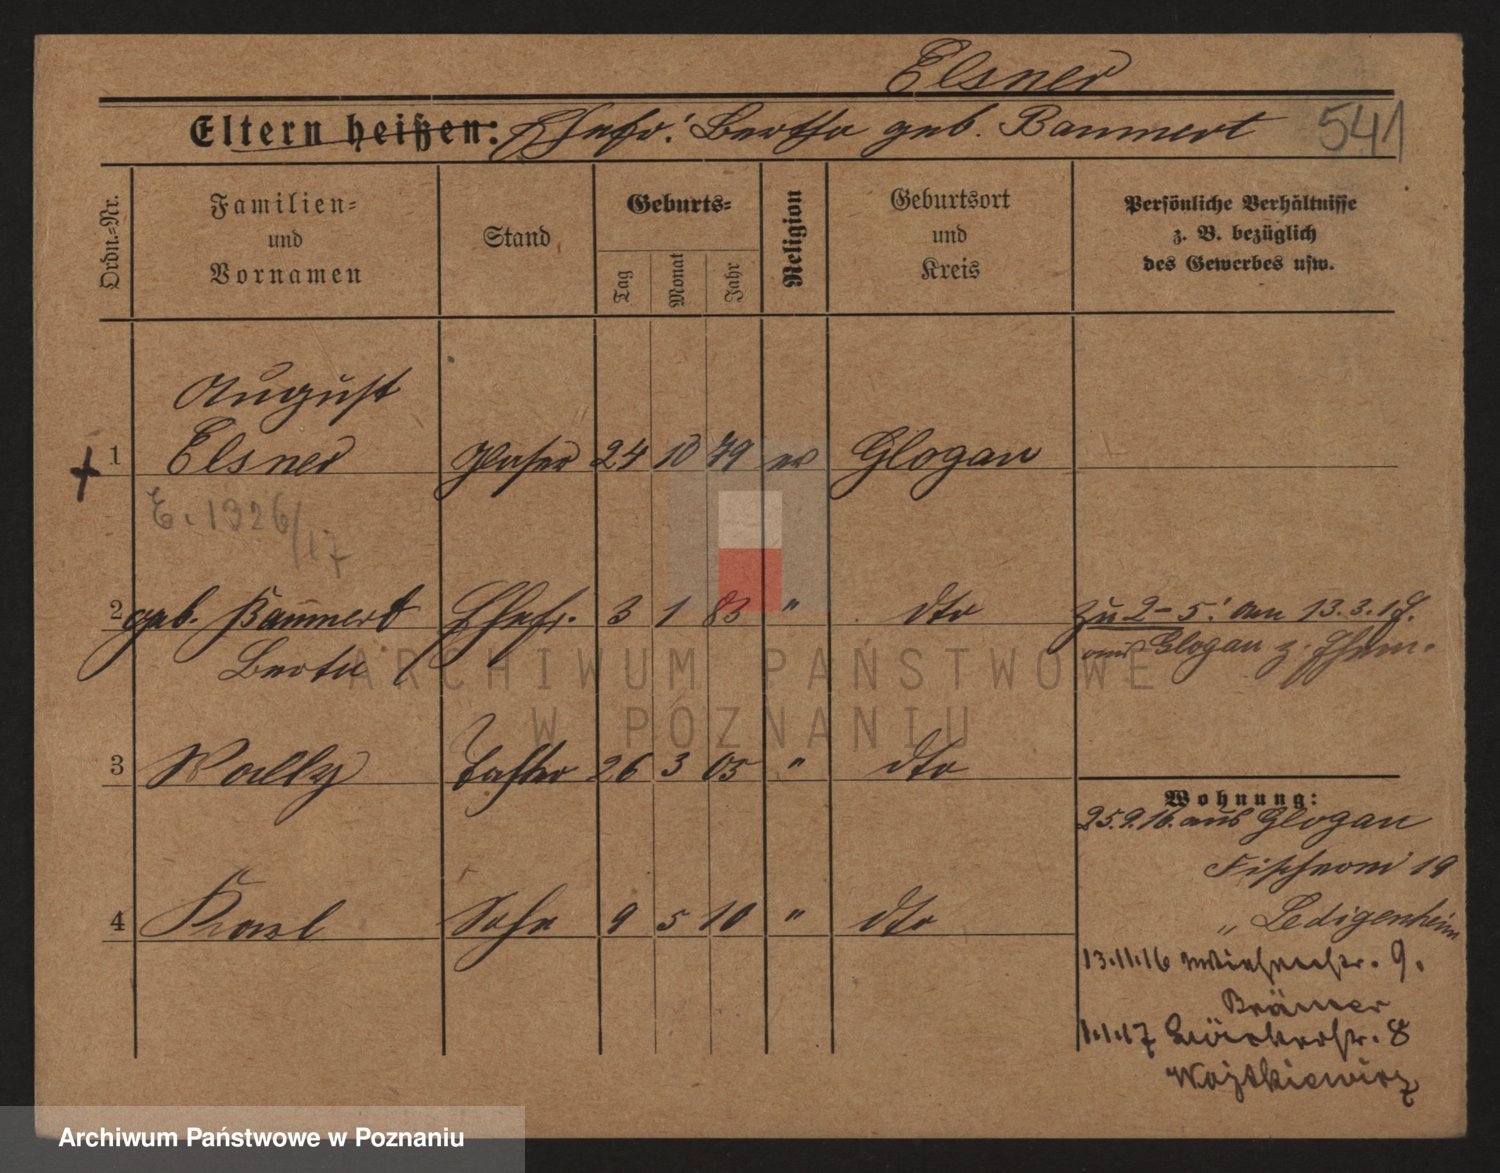 Elsner
Eltern heißen: Ehefr. Bertha geb. Baumert 541
Ordn.=Nr.
Familien=
und
Vornamen
Stand
Geburts=
Tag
Monat
Jahr
Religion
Geburtsort
und
Kreis
Persönliche Verhältnisse
z. B. bezüglich
des Gewerbes usw.
August
1 Elsner Glaser 24 10 79 ev Glogau
E. 1326/17
2 geb. Baumert Ehefr. 3 1 83 " dto zu 2-5: am 13.3.17.
Berta aus Glogau z.
3 Wally Tochter 26 3 05 " dto
Wohnung:
25.9.16. aus Glogau
19
4 Karl Sohn 9 5 10 " dto " Ledigenheim
13.11.16 9.
Brämer
1.1.17 8
Wojtkiewicz
ARCHIWUM PAŃSTWOWE
W POZNANIU
Archiwum Państwowe w Poznaniu